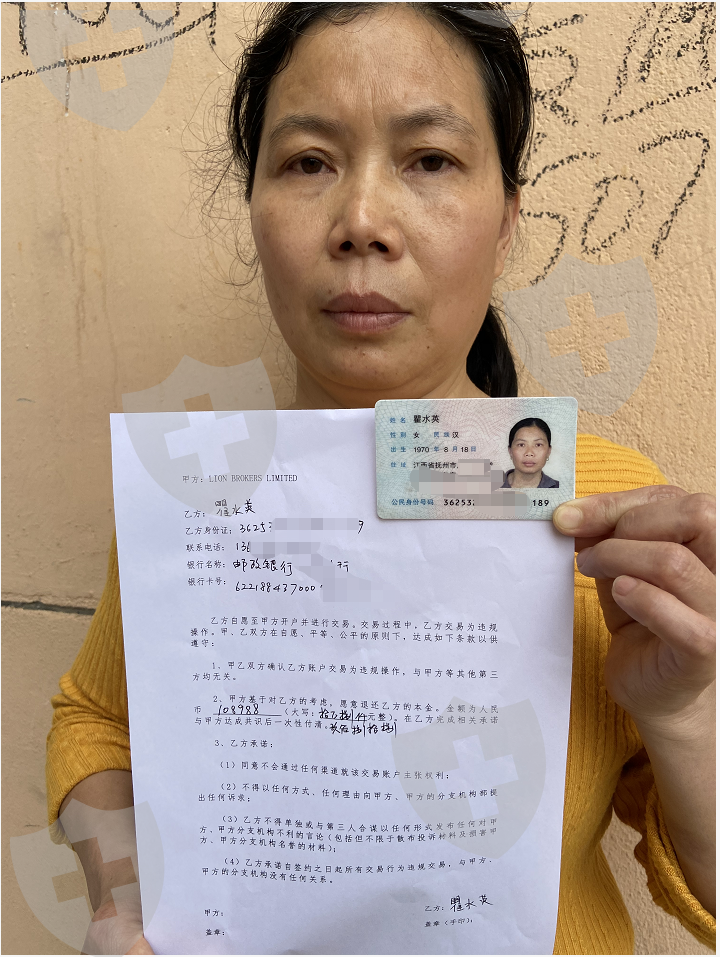 507
姓名 瞿水英
性别 女 民族 汉
出生 1970 年 8 月 18 日
住址 江西省抚州市
公民身份号码 36253 189
甲方：LION BROKERS LIMITED
乙方：瞿水英
乙方身份证：36253 9
联系电话：136
银行名称：邮政银行 行
银行卡号：622188437000
乙方自愿至甲方开户并进行交易。交易过程中，乙方交易为违规
操作。甲、乙双方在自愿、平等、公平的原则下，达成如下条款以供
遵守：
1、甲乙双方确认乙方账户交易为违规操作，与甲方等其他第三
方均无关。
2、甲方基于对乙方的考虑，愿意退还乙方的本金。金额为人民
币 108988 （大写：拾万捌仟元整）。在乙方完成相关承诺
玖佰捌拾捌
与甲方达成共识后一次性付清。
3、乙方承诺：
（1）同意不会通过任何渠道就该交易账户主张权利；
（2）不得以任何方式、任何理由向甲方、甲方的分支机构都提
出任何诉求；
（3）乙方不得单独或与第三人合谋以任何形式发布任何对甲
方、甲方分支机构不利的言论（包括但不限于散布投诉材料及损害甲
方、甲方分支机构名誉的材料）；
（4）乙方承诺自签约之日起所有交易行为违规交易，与甲方、
甲方的分支机构没有任何关系。
甲方： 乙方：瞿水英
盖章： 盖章（手印）：